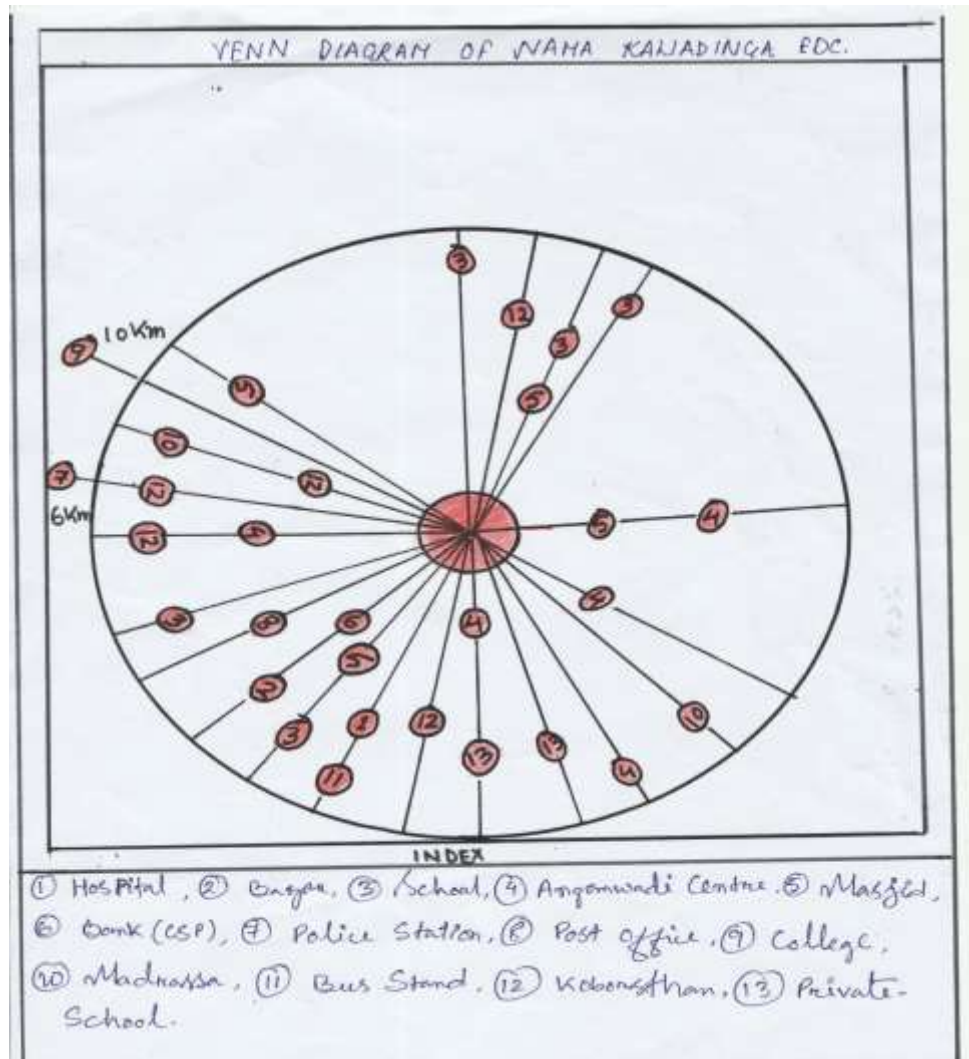 VENN DIAGRAM OF NAMA KALIADINGA EDC.
3
12
3
3
5
10Km
9
5
10
12
7
12
6Km
12
5
4
4
3
8
6
4
5
3
8
12
13
13
4
10
11
INDEX
① Hospital, ② Bazar, ③ School, ④ Anganwadi Centre ⑤ Masjid,
⑥ Bank (CSP), ⑦ Police Station, ⑧ Post Office, ⑨ College,
⑩ Madrassa, ⑪ Bus Stand, ⑫ Kobarsthan, ⑬ Private-
School.